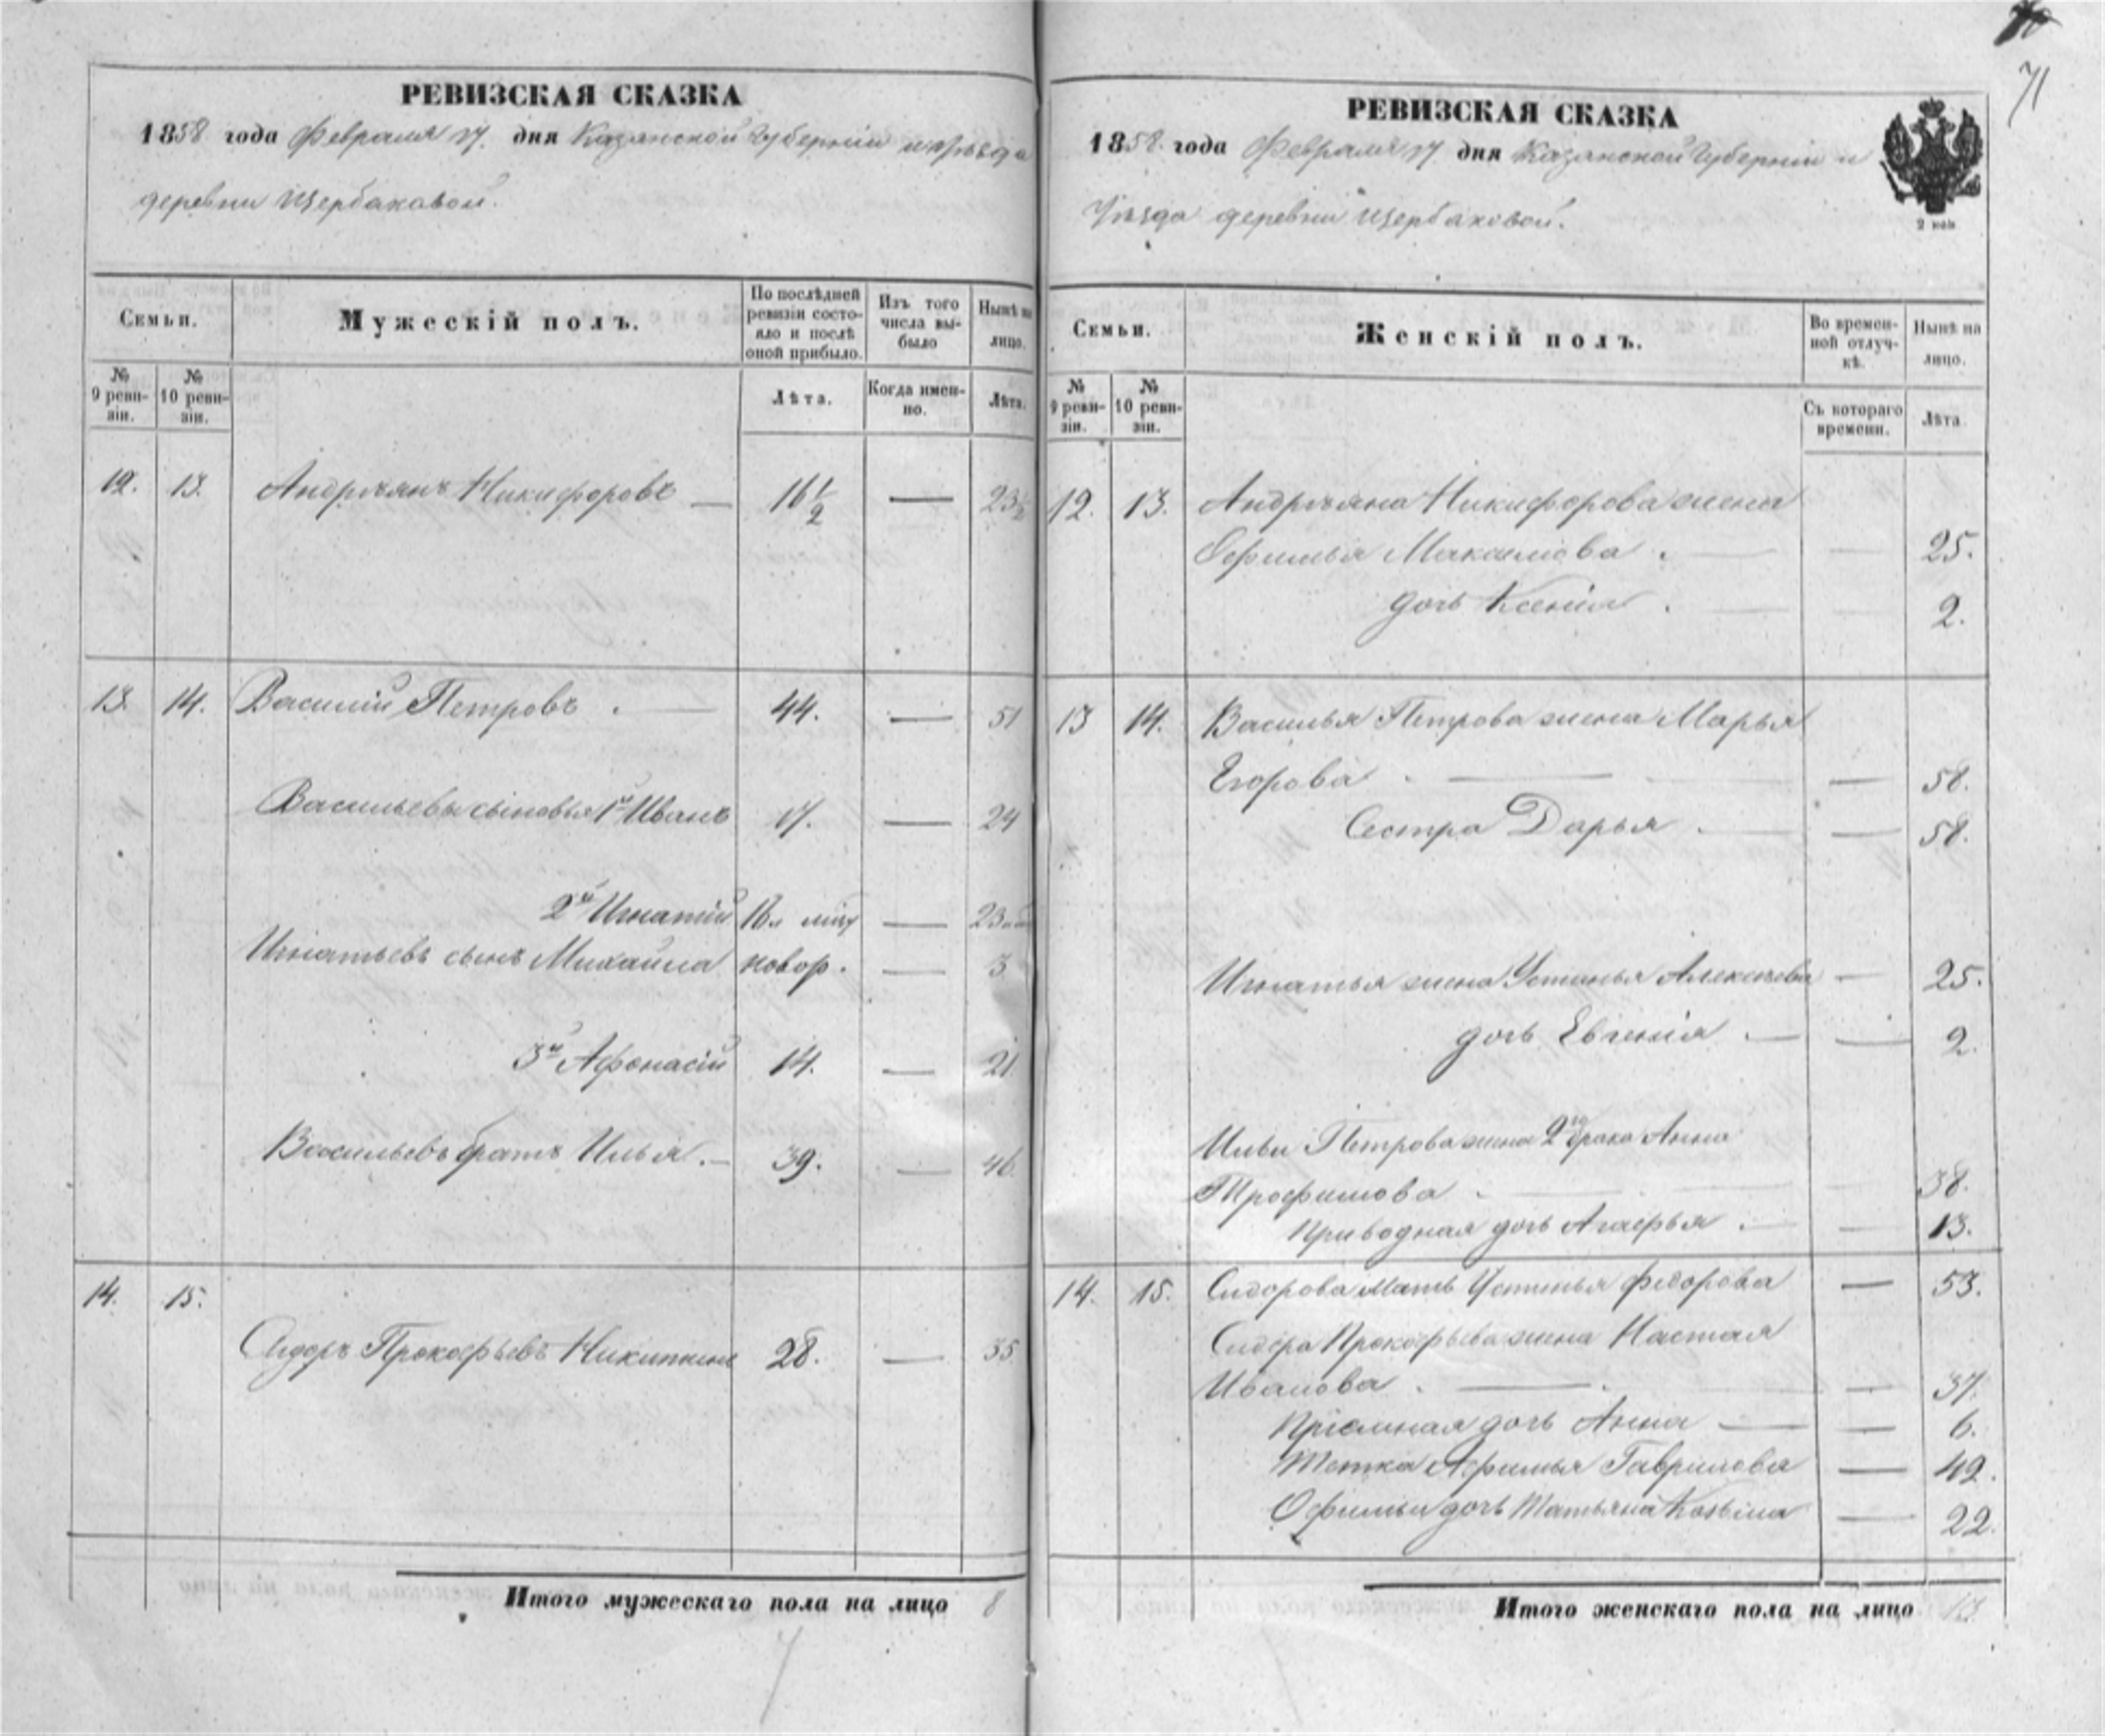 РЕВИЗСКАЯ СКАЗКА
1858 года Февраля 17. дня Казанской Губернии и уѣзда
деревни Щербаковой.
Семьи.
Мужескій полъ.
По послѣдней ревизіи состояло и послѣ оной прибыло.
Изъ того числа выбыло
Нынѣ на лицо.
№ 9 ревизіи.
№ 10 ревизіи.
Лѣта.
Когда именно.
Лѣта.
12. 13. Андреянъ Никифоровъ — 16 1/2 — 23 1/2
13. 14. Василій Петровъ . — 44. — 51
Васильевы сыновья 1й Иванъ 17. — 24
2й Игнатій — 23
Игнатьевъ сынъ Михайла новор. — 3
3й Афонасій 14. — 21
Васильевъ братъ Илья . — 39. — 46
14. 15.
Сидоръ Прокофьевъ Никитинъ 28. — 35
Итого мужескаго пола на лицо 8
7
71
РЕВИЗСКАЯ СКАЗКА
1858. года Февраля 17 дня Казанской Губерніи и
Уѣзда деревни Щербаковой.
2 коп
Семьи.
Женскій полъ.
Во временной отлучкѣ.
Нынѣ на лицо.
№ 9 ревизіи.
№ 10 ревизіи.
Съ котораго времени.
Лѣта.
12. 13. Андреяна Никифорова жена
Офимья Максимова . — — 25.
дочь Ксенія . — — 2.
13 14. Василья Петрова жена Марья
Егорова . — — 58.
Сестра Дарья . — — 58.
Игнатья жена Устинья Алексѣева — 25.
дочь Евгенія . — — 2.
Ильи Петрова жена 2го брака Анна
Трофимова . — — 38.
Приводная дочь Агафья . — — 13.
14. 15. Сидорова Мать Устинья Федорова — 53.
Сидора Прокофьева жена Настая
Иванова . — — 37.
Пріемная дочь Анна — — 6.
Тетка Афимья Гаврилова — 42.
Офимьи дочь Татьяна Козьмина — 22.
Итого женскаго пола на лицо 13